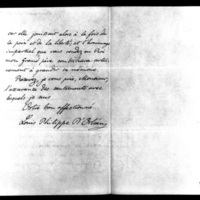 car elle jouissait alors à la fois de
la paix et de la liberté, et l'hommage
impartial que vous rendez au Roi
mon grand père contribuera
à grandir sa mémoire.
Recevez, je vous prie, Monsieur,
l'assurance des sentiments avec
lesquels je suis
Votre bien affectionné
Louis Philippe d'Orléans